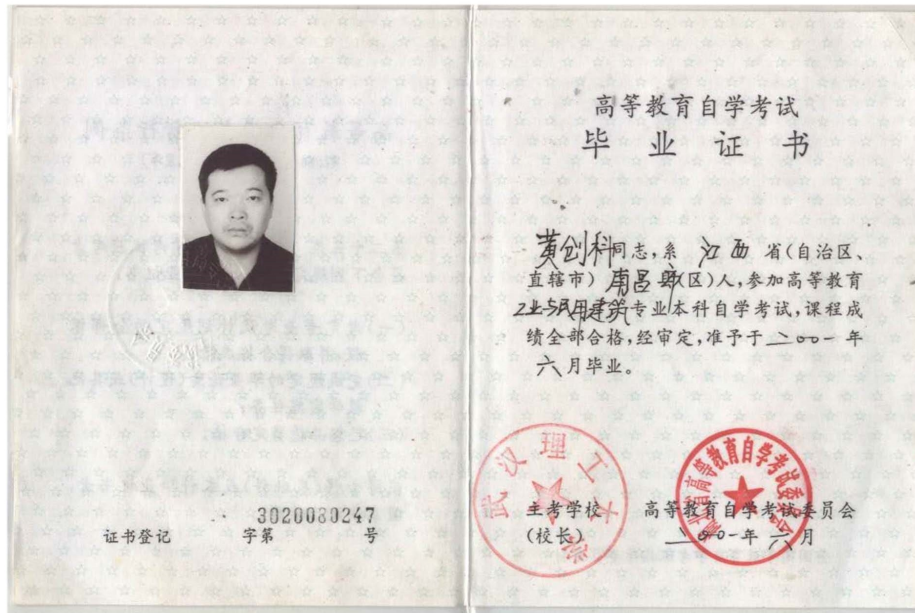 证书登记 字第 3020080247 号
高等教育自学考试
毕业证书
黄创科同志,系 江西 省(自治区、
直辖市) 南昌县(区)人,参加高等教育
工业与民用建筑专业本科自学考试,课程成
绩全部合格,经审定,准予于二〇〇一年
六月毕业。
武汉理工大学
主考学校
(校长)
湖北省高等教育自学考试委员会
高等教育自学考试委员会
二〇〇一年六月